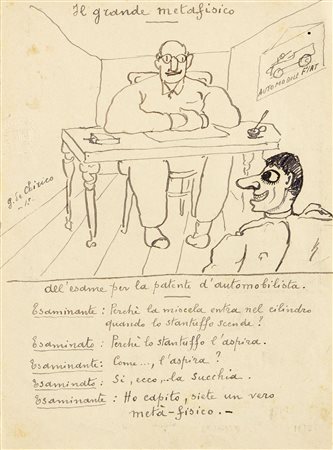 Il grande metafisico
AUTOMOBILE FIAT
g. de Chirico
all'esame per la patente d'automobilista.
Esaminante: Perchè la miscela entra nel cilindro
quando lo stantuffo scende?
Esaminato: Perchè lo stantuffo l'aspira.
Esaminante: Come..., l'aspira?
Esaminato: Si, ecco,..la succhia.
Esaminante: Ho capito, siete un vero
meta-fisico.—